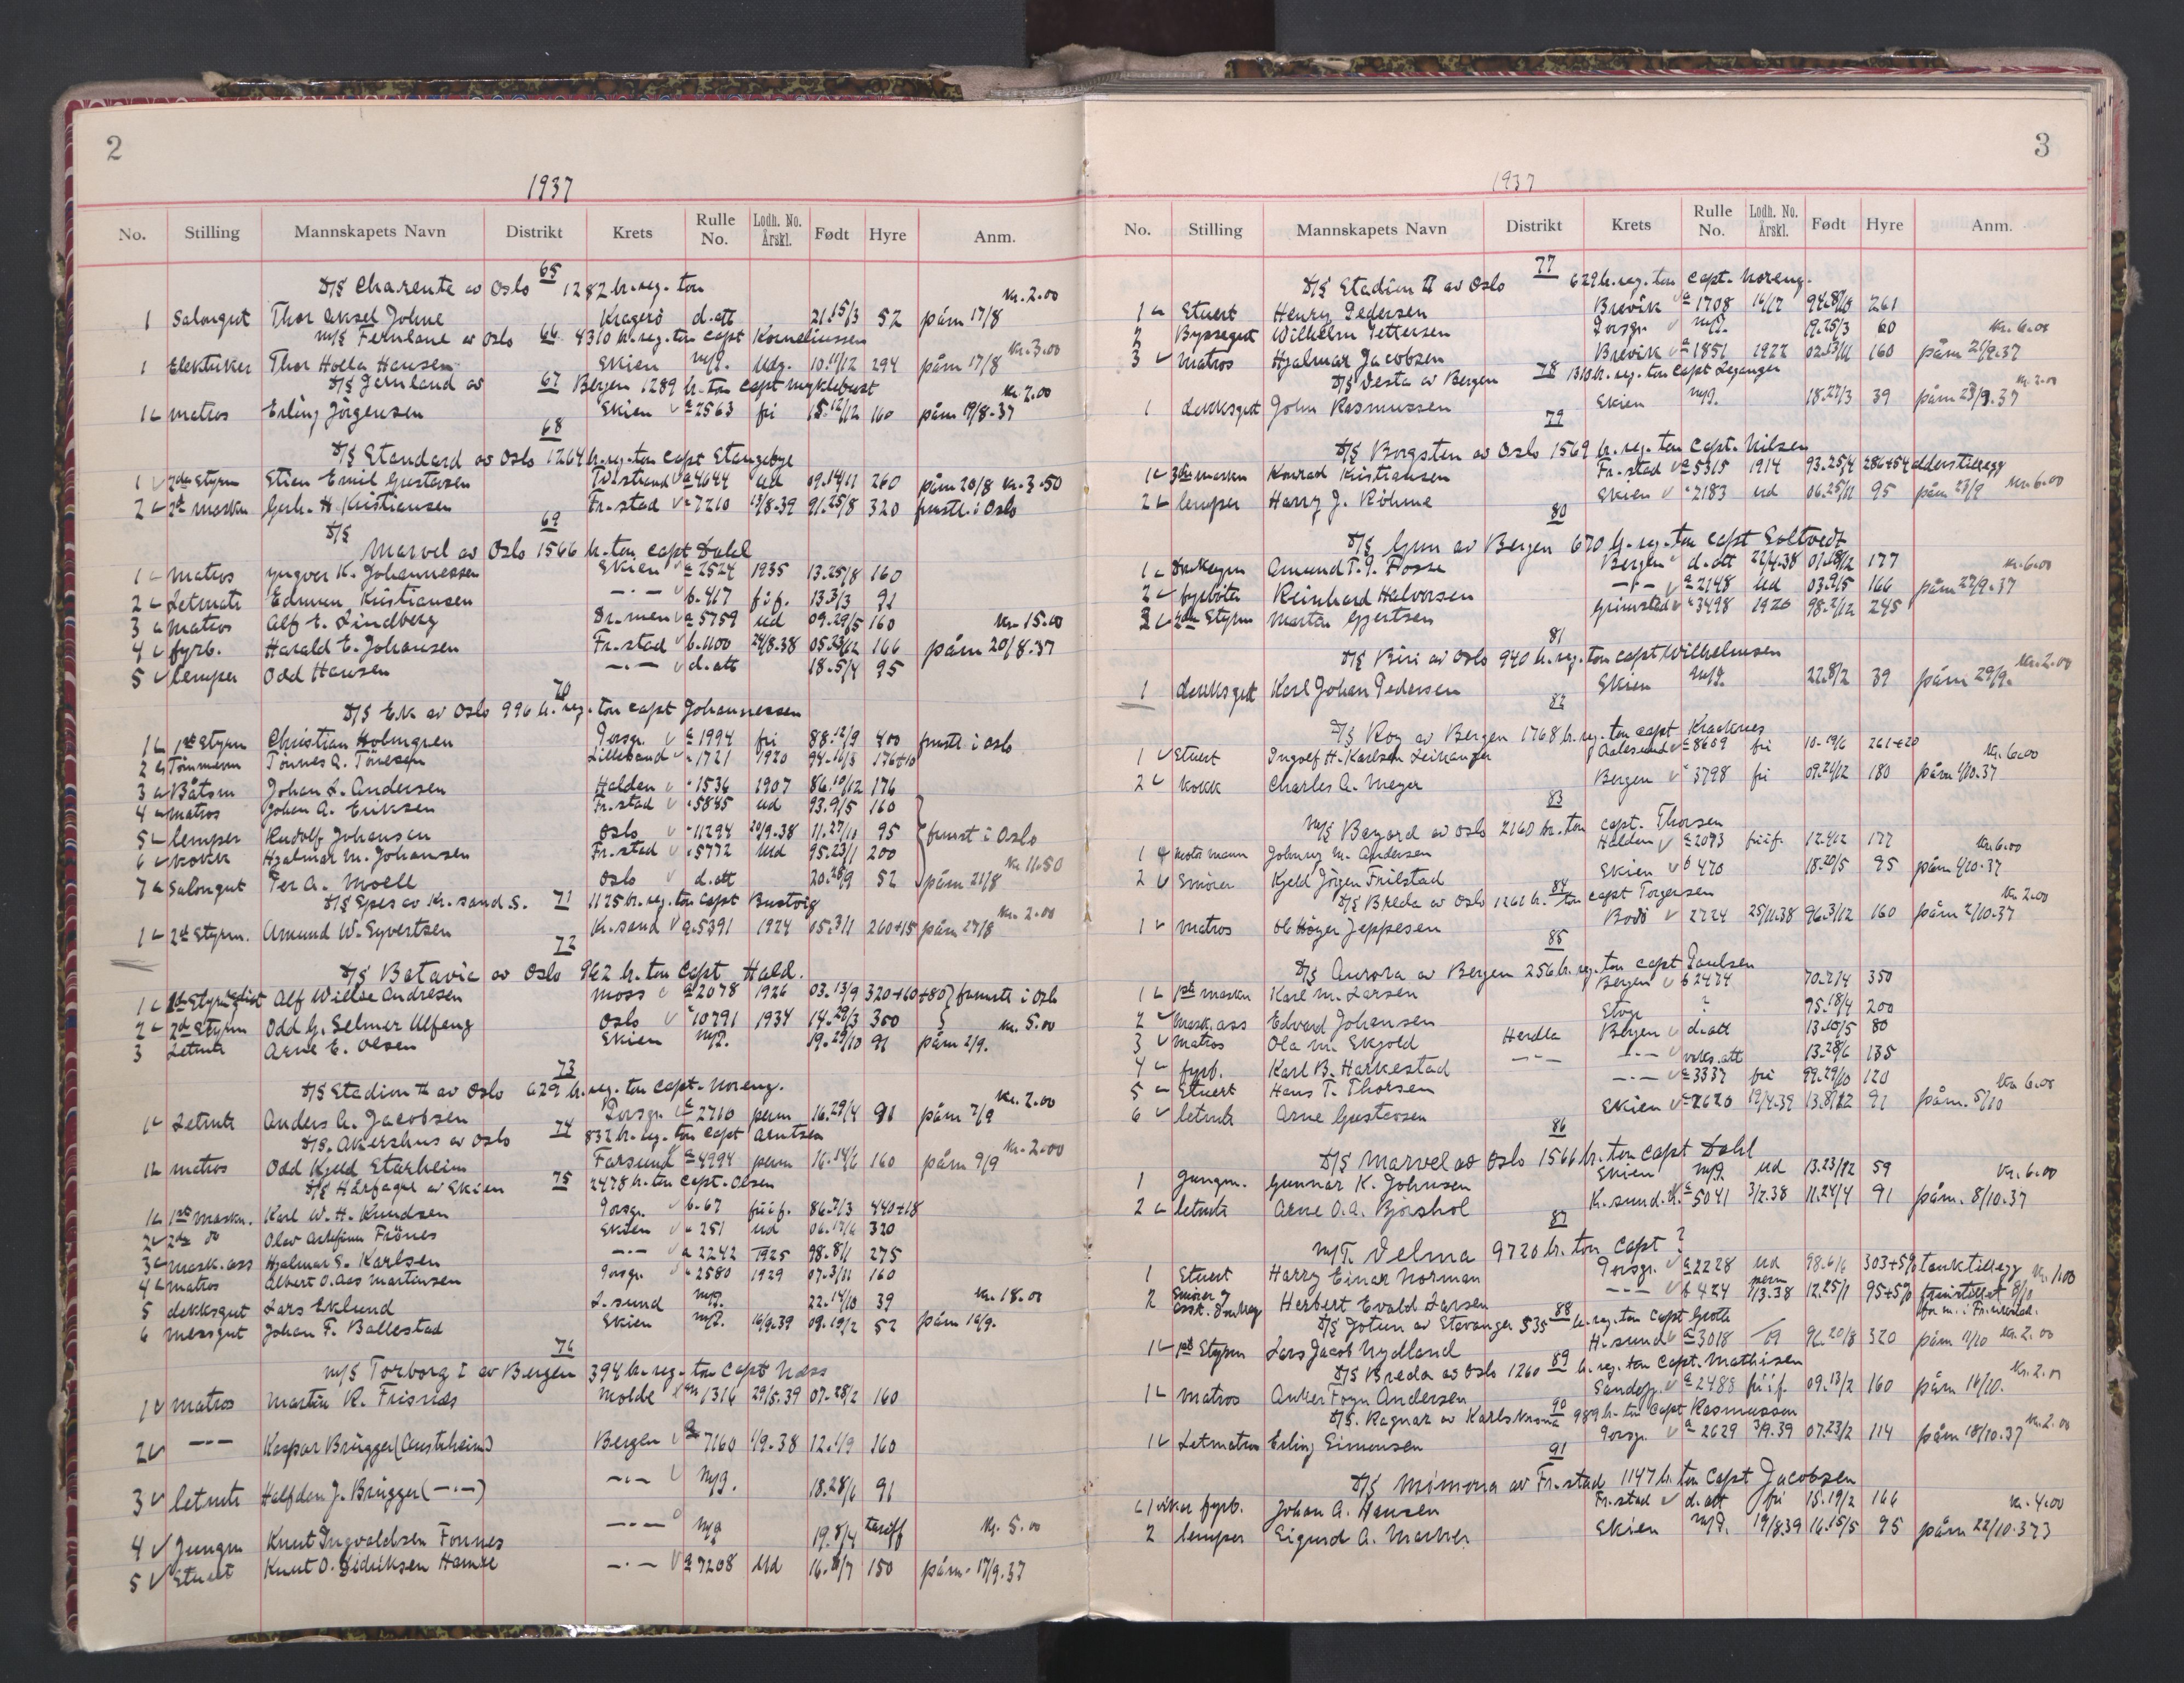 2
1937
No. Stilling Mannskapets Navn Distrikt Krets Rulle No. Lodh. No. Årskl. Født Hyre Anm.
65
D/S Charente av Oslo 1282 br.reg. ton
kr. 2.00
1 Salongut Thor Aksel Johne Kragerø d.att 21.15/3 52 påm 17/8
M/S Fernlane av Oslo 66 4310 br.reg. ton capt Korneliussen
kr. 3.00
1 Elektriker Thor Holla Hansen Skien m/p. Udg. 10.11/12 294 påm 17/8
D/S Jernland av 67 Bergen 1289 br. ton capt Myklebust
kr. 2.00
1 matros Erling Jörgensen Skien a 2563 fri 15.12/12 160 påm 19/8-37
68
D/S Standard av Oslo 1264 br.reg. ton capt Stangebye
1 2den Styrm Stian Emil Gustavsen a 4644 ud 09.14/11 260 påm 20/8 kr. 3.50
2 2d maskn Gerh. H. Kristiansen Fr.stad 7210 13/8-39 91.25/8 320 fmstr. i Oslo
69
D/S
Marvel av Oslo 1566 br. ton capt Dahl
1 Matros Yngvar K. Johannessen Skien a 2524 1935 13.25/8 160
2 Letmatr Edmun Kristiansen -"- b. 417 f.i.f. 13.3/3 91
3 Matros Alf E. Lindberg Dr.men a 5759 ud 09.29/5 160 kr. 15.00
4 fyrb. Harald E. Johansen Fr.stad b. 1100 24/8.38 05.23/12 166 påm 20/8.37
5 lemper Odd Hansen -"- d.att 18.5/4 95
70
D/S Ek av Oslo 996 br.reg. ton capt Johannessen
1 1ste Styrm Christian Holmgren Porsgr. a 1994 fri 88.12/9 400 fmstr. i Oslo
2 Tömmerm Tönnes A. Tönesen Lillesand 1721 1920 94.16/3 176+10
3 Båtsm Johan L. Andersen Halden 1536 1907 86.10/12 176
4 matros Johan A. Eriksen Fr.stad 5845 ud 93.9/5 160
5 lemper Rudolf Johansen Oslo 11294 20/9.38 11.27/10 95 fmst i Oslo
6 Kokk Hjalmar M. Johansen Fr.stad 5772 ud 95.23/1 200
kr 11.50
7 Salongut Per A. Moell Oslo d.att 20.28/9 52 påm 21/8
D/S Spes av Kr.sand S. 71 1125 br.reg. ton capt Bustvig
kr. 2.00
1 2d Styrm. Amund W. Syvertsen Kr.sand a. 5391 1924 05.3/11 260+15 påm 27/8
72
D/S Batavia av Oslo 962 br. ton Capt Hald.
1 Alf Willoe Andresen Moss a 2078 1926 03.13/9 320+60+80 fmmstr i Oslo
2 2d Styrm Odd G. Selmer Ulfeng Oslo 10791 1934 14.29/3 300 kr. 5.00
3 Letmtr Arne E. Olsen Skien m/p. 19.29/10 91 påm 2/9.
73
D/S Stadion II av Oslo 629 br.reg. ton Capt. Noreng.
kr. 2.00
1 Letmtr Anders A. Jacobsen Porsgr. a 2710 perm 16.29/4 91 påm 7/9
D/S. Akershus av Oslo 74 832 br.reg. ton capt Arntsen
kr. 2.00
1 matros Odd Kjeld Starheim Farsund a 4994 perm 16.14/6 160 påm 9/9
D/S Hårfagre av Skien 75 2478 br. ton Capt. Olsen
1 1ste Maskn. Karl W. H. Knudsen Porsgr. b. 67 f.i.f. 86.7/3 440+18
2 2de do Olav Frönes Skien 251 ud 06.17/6 320
3 mask.ass Hjalmar S. Karlsen -"- a 2242 1925 98.8/1 275
4 matros Albert O. Aas Martinsen Porsgr. 2580 1929 07.3/11 160
5 dekksgut Lars Eklund L.sund m/p. 22.14/10 39 kr. 18.00
6 messgut Johan F. Ballestad Skien m/p. 16/9.39 09.19/2 52 påm 16/9.
76
M/S Torborg I av Bergen 394 br.reg. ton Capt Næss
1 matros Martin R. Frisnes Molde 1316 29/5.39 07.28/2 160
2 -"- Kaspar Brügger (Austrheim) Bergen a 7160 1/9.38 12.1/9 160
3 letmtr Halfdan J. Brügger (-"-) -"- m/p. 18.28/6 91
4 Jungm Knut Ingvaldsen Fonnes -"- m/p 19.8/4 tariff kr. 5.00
5 Stuert Knut O. Didriksen Hamre -"- a 7208 ud 16.11/7 150 påm. 17/9.37
3
1937
No. Stilling Mannskapets Navn Distrikt Krets Rulle No. Lodh. No. Årskl. Født Hyre Anm.
77
D/S Stadion II av Oslo 629 br.reg. ton Capt. Noreng.
1 Stuert Henry Pedersen Brevik a 1708 16/17 261
2 Byssegut Wilhelm Pettersen Porsgr. m/p. 19.25/3 60 kr. 6.00
3 matros Hjalmar Jacobsen Brevik a 1851 1922 02.13/11 160 påm 21/9.37
D/S Vesta av Bergen 78 1310 br.reg. ton Capt Leganger
kr. 2.00
1 dekksgut John Rasmussen Skien m/p. 18.27/3 39 påm 23/9.37
79
D/S Borgsten av Oslo 1569 br.reg. ton Capt. Nilsen
1 3die maskn Konrad Kristiansen Fr.stad a 5315 1914 93.25/4 286+54 alderstillegg
2 lemper Harry J. Röhme Skien 2183 ud 06.25/11 95 påm 23/9 kr. 6.00
80
D/S Gunn av Bergen 670 br.reg. ton capt Soltvedt
1 Amund T. I. Fosse Bergen d.att 22/4.38 01.18/12 177 kr. 6.00
2 fyrböter Reinhard Halvorsen -"- a 2148 ud 03.9/5 166 påm 27/9.37
3 2den Styrm Martin Gjertsen Grimstad 3498 1920 98.2/12 245
81
D/S Biri av Oslo 940 br.reg. ton capt Wilhelmsen
kr. 2.00
1 dekksgutt Karl Johan Pedersen Skien m/p. 22.8/2 39 påm 29/9.
82
D/S Roy av Bergen 1768 br.reg. ton capt Kraakenes
1 Stuert Ingolf H. Karlsen Leikanger Aalesund a 8609 fri 10.19/6 261+20 kr. 6.00
2 Kokk Charles A. Meyer Bergen 3798 fri 09.24/12 180 påm 1/10.37
83
M/S Bayard av Oslo 2160 br. ton capt. Thorsen
1 Motormann Johnny M. Andersen Halden a 2093 f.i.f. 12.4/12 177 kr. 6.00
2 Smörer Kjeld Jörgen Frilstad Skien b 470 18.20/5 95 påm 1/10.37
D/S Breda av Oslo 1261 br. 84 ton capt Torgersen
kr 2.00
1 matros Ol Höyer Jeppesen Bodö 2724 25/11.38 96.3/12 160 påm 2/10.37
85
D/S Aurora av Bergen 256 br.reg. ton capt Paulsen
1 1ste maskn Karl M. Larsen Bergen b 2474 70.7/4 350
2 Mask.ass Edvard Johansen Stord ? 95.18/4 200
3 matros Ola M. Skjold Herdla Bergen d.att 13.10/5 80
4 fyrb. Karl B. Harkestad -"- -"- verks.att 13.28/6 135
5 Stuert Hans T. Thorsen -"- a 3337 fri 99.29/10 120 kr 6.00
6 letmtr Arne Gustavsen Skien 2620 19/4.39 13.8/12 91 påm. 5/10
86
D/S Marvel av Oslo 1566 br. ton Capt Dahl
1 Jungm. Gunnar K. Johnsen Skien m/p. ud 13.23/12 59 kr. 6.00
2 letmtr Arne O. A. Bjørshol K.sund.N. a 5041 3/2.38 11.24/4 91 påm. 8/10.37
87
M/T. Velma 9720 br. ton Capt ?
1 Stuert Harry Einar Norman Porsgr. a 2228 ud 98.6/6 303+5% tanktillegg
2 Smører og Herbert Evald Larsen -"- b 424 perm 7/3.38 12.25/1 95+5% kr. 1.00
D/S Jotun av Stavanger 535 88 br.reg. ton Capt Groth
1 1ste Styrm Lars Jacob Nydland H.sund a 3018 320 påm 11/10 kr. 2.00
D/S Breda av Oslo 1260 89 br.reg. ton Capt. Mathisen
kr. 2.00
1 matros Anker Foyn Andersen Sandefj. a 2488 f.i.f. 09.13/2 160 påm 16/10.
D/S. Ragnar av Karlskrona 90 989 br. ton Capt Rasmussen
1 Letmatros Erling Simonsen Porsgr. a 2629 3/9.39 07.23/2 114 påm 18/10.37 kr. 2.00
91
D/S Mimona av Fr.stad 1147 br. ton Capt Jacobsen
1 vikar fyrb. Johan A. Hansen Fr.stad d.att fri 15.19/2 166 kr. 4.00
2 lemper Sigurd A. Marker Skien m/p. 19/8.39 16.15/5 95 påm 22/10.373